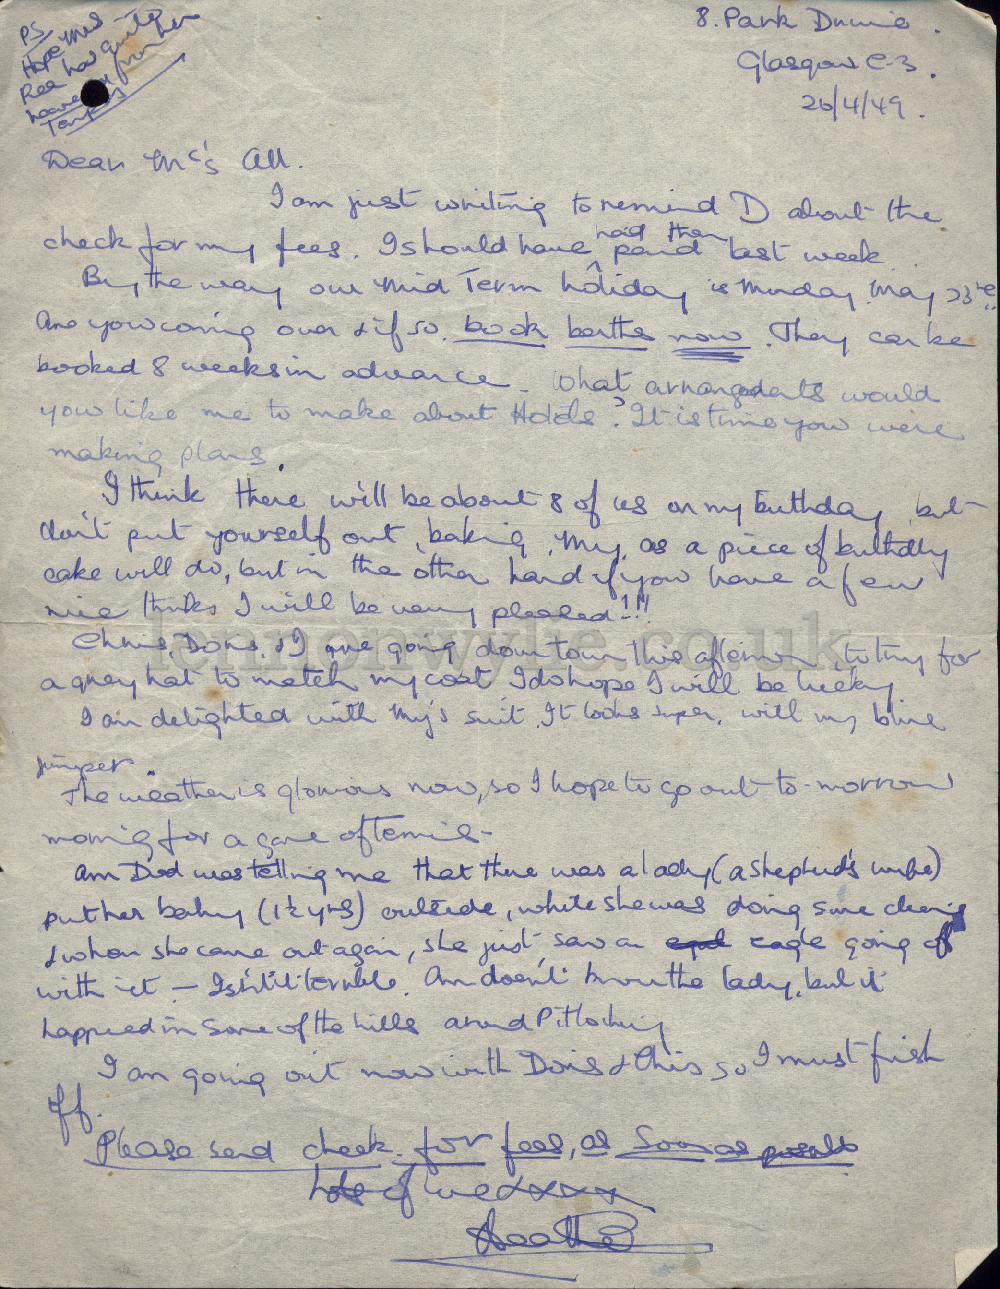 PS/
Hope Mrs
Rea has quite
from her
8. Park Drive.
Glasgow C-3.
26/4/49.
Dear Mc's All.
I am just writing to remind D about the
check for my fees. I should have paid them last week
By the way our Mid Term holiday is Monday May 23rd.
Are you coming over & if so, book berths now. They can be
booked 8 weeks in advance. What arrangements would
you like me to make about Hotels? It is time you were
making plans.
I think there will be about 8 of us on my birthday but
don't put yourself out, baking, My, as a piece of birthday
cake will do, but in the other hand if you have a few
nice things I will be very pleased!!!
lennonwylie.co.uk
Chris, Doris, & I are going down town this afternoon to try for
a grey hat to match my coat I do hope I will be lucky
I am delighted with My's suit. It looks super, with my blue
jumper.
The weather is glorious now, so I hope to go out to-morrow
morning for a game of Tennis-
Ann Dod was telling me that there was a lady (a shepherd's wife)
put her baby (1½ yrs) outside, while she was doing some cleaning
& when she came out again, she just saw an eagle going off
with it - Isn't it terrible. Ann doesn't know the lady, but it
happened in some of the hills around Pitlochry
I am going out now with Doris & Chris so I must finish
off.
Please send check for fees, as soon as possible
Lots of love xxxx
Heather